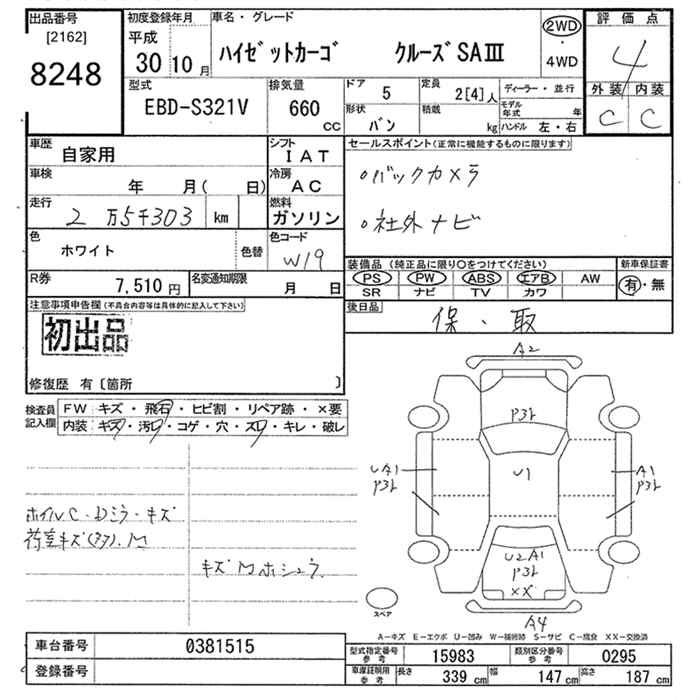 出品番号
[2162]
8248
初度登録年月
平成
30 10 月
車名・グレード
ハイゼットカーゴ クルーズSAIII
2WD
・
4WD
評価点
4
外装 内装
C C
型式
EBD-S321V
排気量
660
CC
ドア
5
定員
2[4]人
ディーラー・並行
形状
バン
積載
kg
モデル年式 年
ハンドル 左・右
車歴
自家用
シフト
IAT
車検
年 月( 日)
冷房
AC
走行
2 万5千303 km
燃料
ガソリン
色
ホワイト
色替
色コード
W19
R券
7,510 円
名変通知期限
月 日
セールスポイント(正常に機能するものに限ります)
○バックカメラ
○社外ナビ
装備品(純正品に限り○をつけてください)
PS PW ABS エアB AW
SR ナビ TV カワ
新車保証書
有・無
後日品
保・取
注意事項申告欄(不具合内容等は具体的に記入して下さい)
初出品
修復歴 有〔箇所 〕
検査員
記入欄
FW キズ・飛石・ヒビ割・リペア跡・×要
内装 キズ・汚レ・コゲ・穴・スレ・キレ・破レ
ホイルC・Dミラーキズ
荷室キズ
キズMホシュウ
A2
P31
U1
UA1
P31
A1
P31
U2A1
P31
XX
A4
スペア
A-キズ E-エクボ U-凹み W-補修跡 S-サビ C-腐食 XX-交換済
車台番号
0381515
登録番号
型式指定番号
参考
15983
類別区分番号
参考
0295
車庫証明用
参考
長さ
339 cm
幅
147 cm
高さ
187 cm